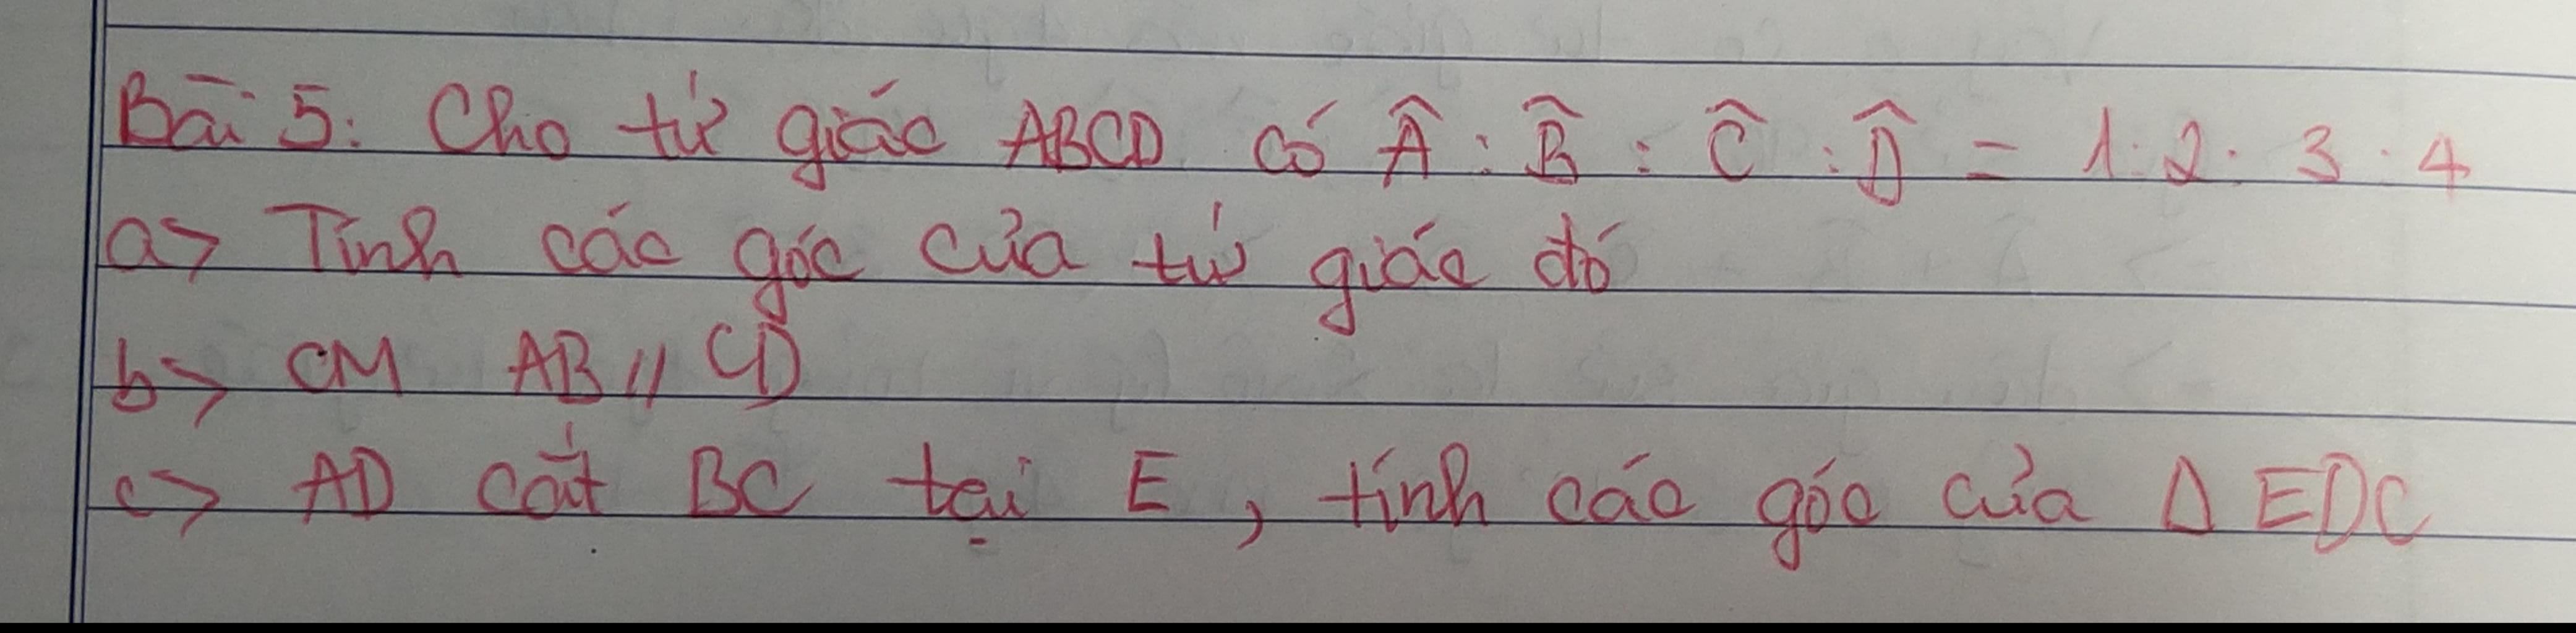 Bài 5: Cho tứ giác ABCD có Â : B̂ : Ĉ : D̂ = 1 : 2 : 3 : 4
a> Tính các góc của tứ giác đó
b> CM AB // CD
c> AD cắt BC tại E, tính các góc của Δ EDC